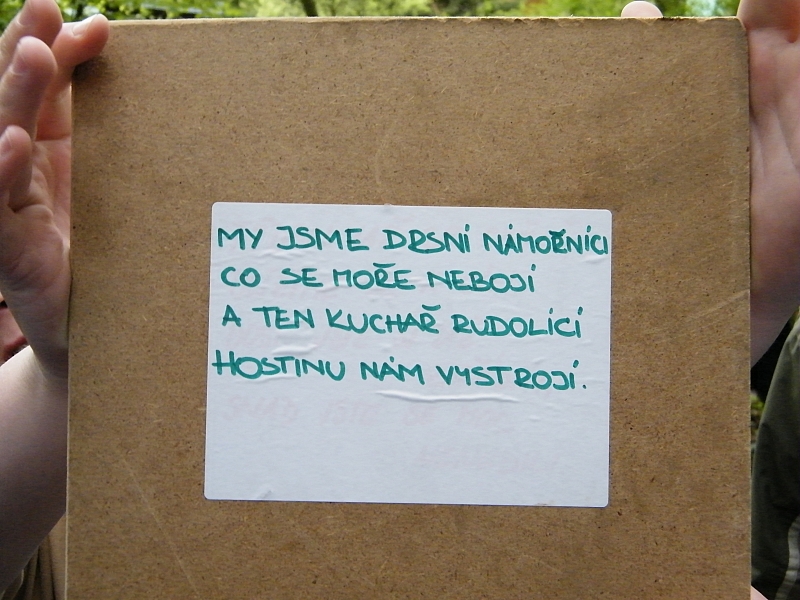 MY JSME DRSNÍ NÁMOŘNÍCI
CO SE MOŘE NEBOJÍ
A TEN KUCHAŘ RUDOLÍCÍ
HOSTINU NÁM VYSTROJÍ.